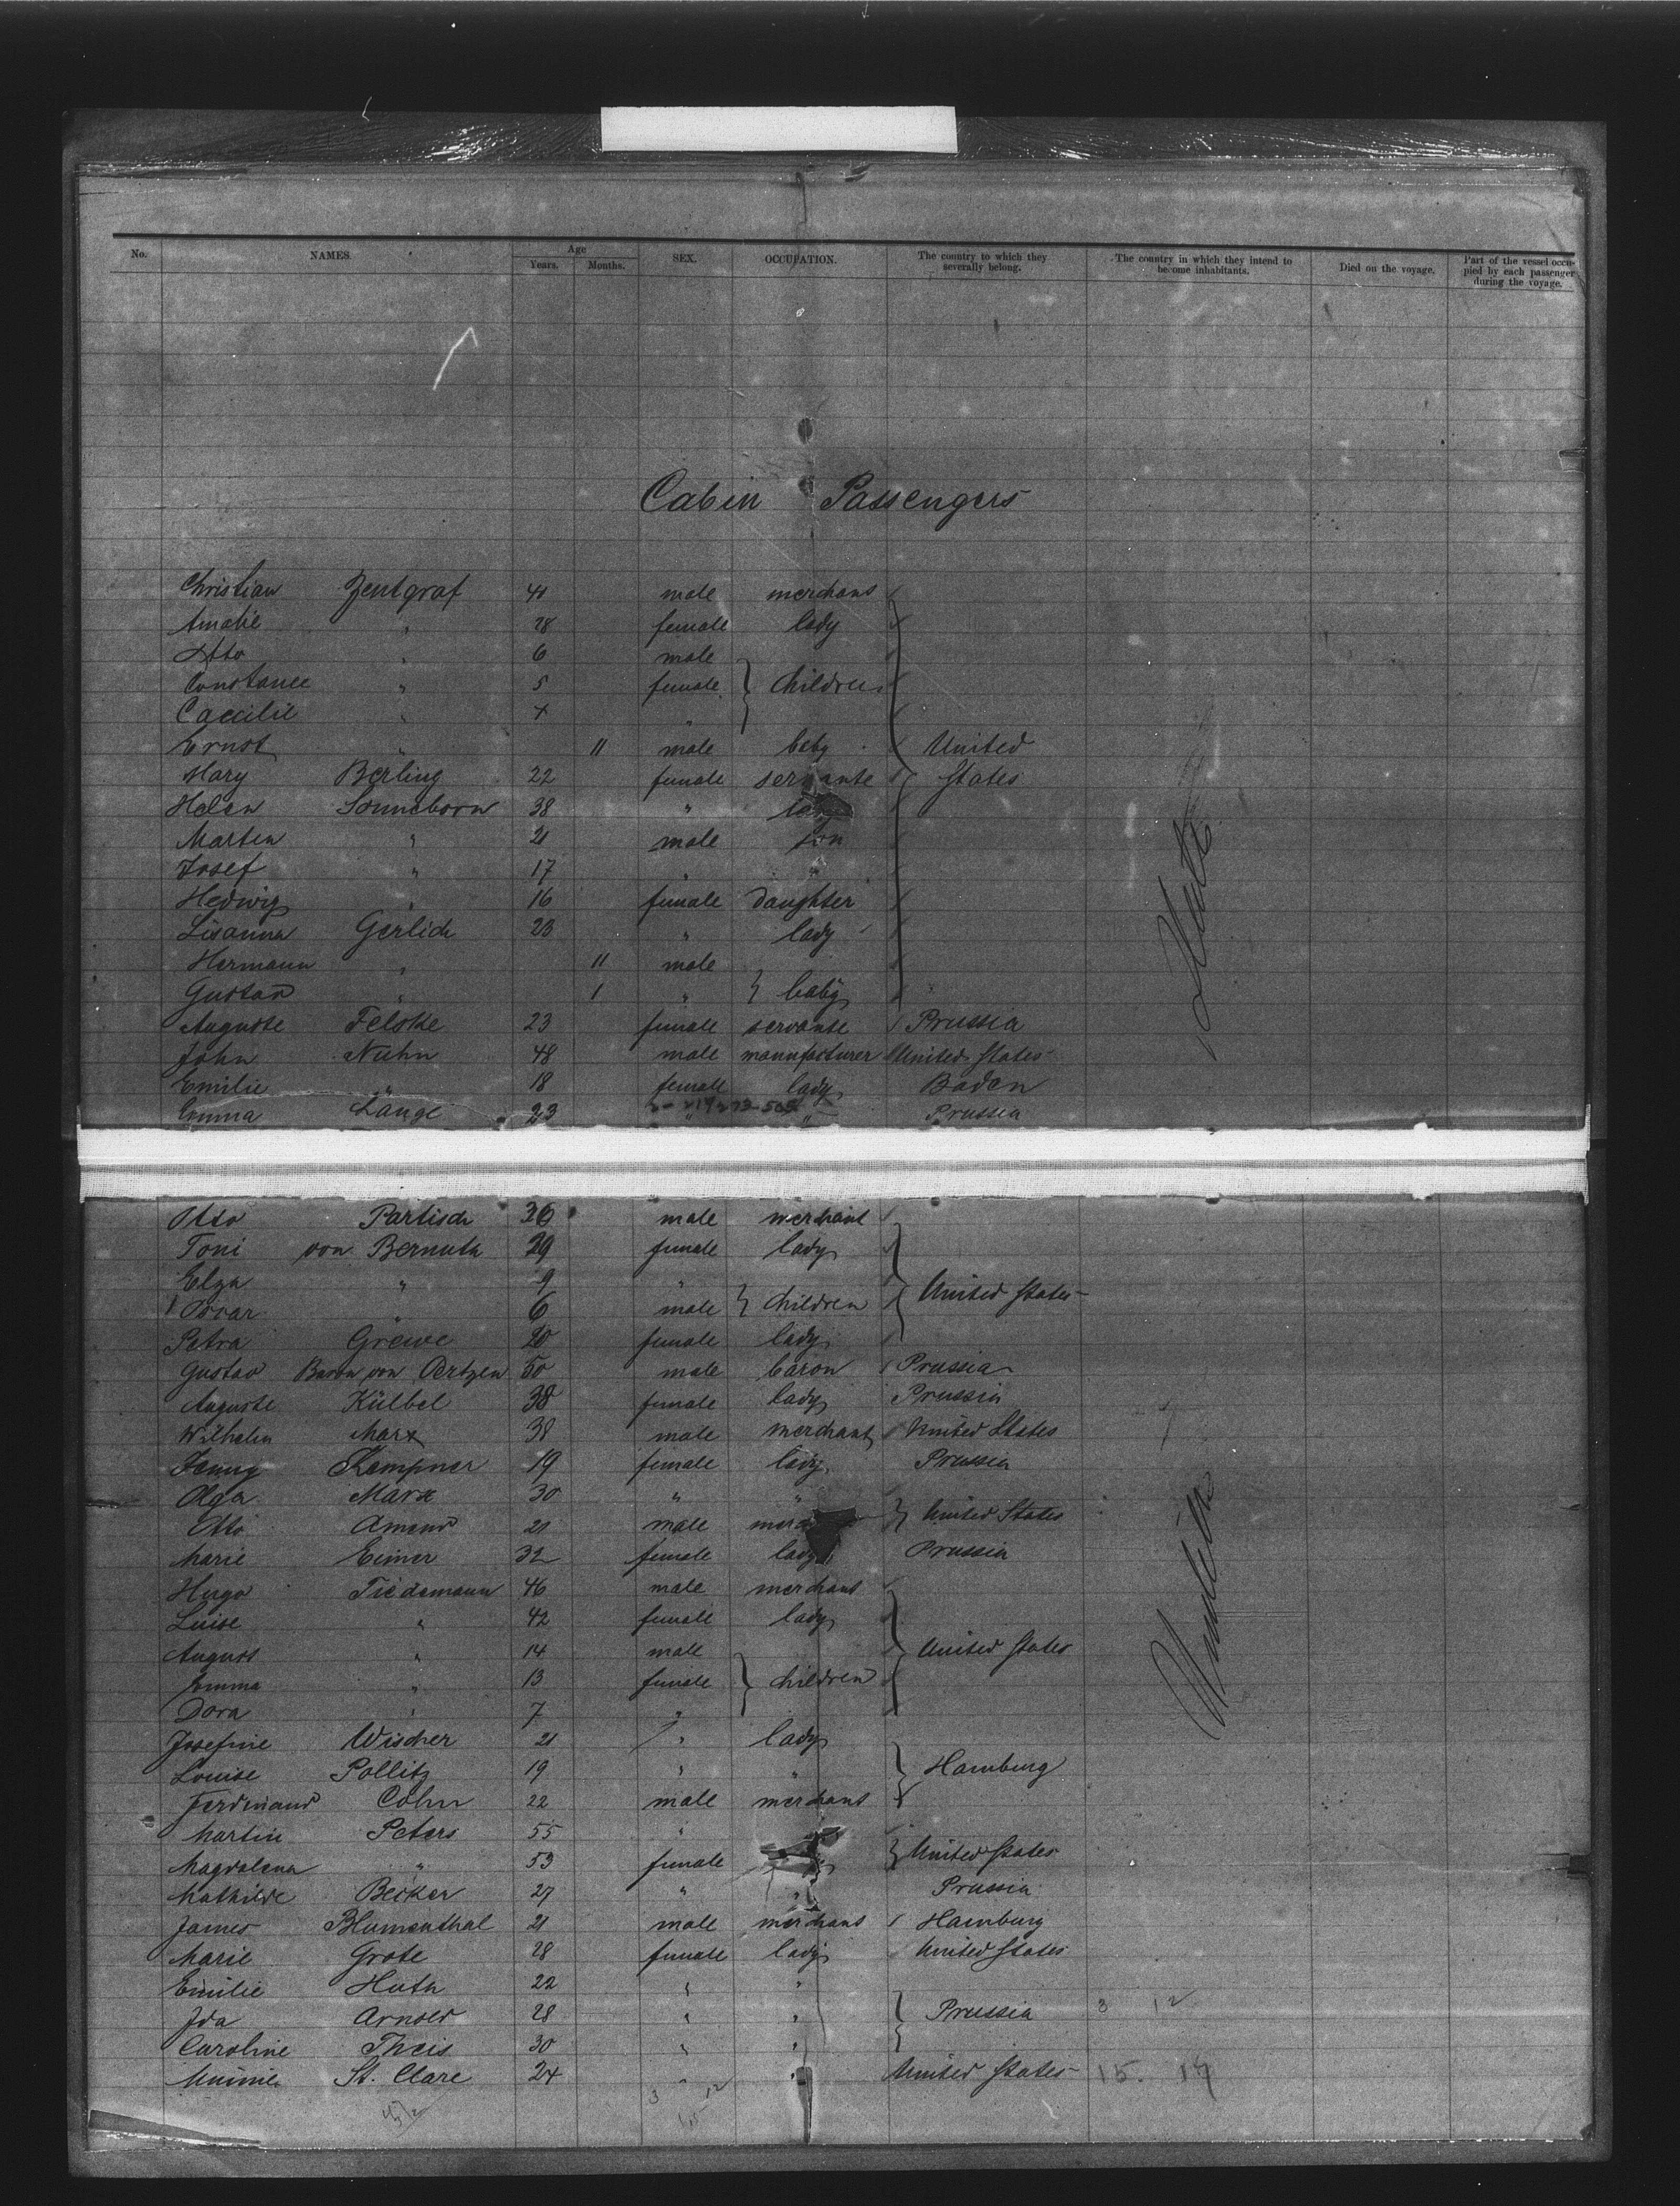 No. NAMES. Age Years. Months. SEX. OCCUPATION. The country to which they severally belong. The country in which they intend to become inhabitants. Died on the voyage. Part of the vessel occupied by each passenger during the voyage.
Cabin Passengers
Christian Zentgraf 41 male merchant
Amalie " 28 female lady
Otto " 6 male
Constance " 5 female } children
Caecilie " 4 "
Ernst " 11 male baby United
Mary Berling 22 female servante States
Helen Sonneborn 38 " lady
Martin " 21 male son
Josef " 17 " "
Hedwig " 16 female daughter
Lisanna Gerlich 23 " lady
Hermann " 11 male
Gustav " 1 " } baby
Auguste Felske 23 female servante Prussia
John Nuhn 48 male manufacturer United States
Emilie " 18 female lady Baden
Emma Lange 23 " " Prussia
Otto Partisch 36 male merchant
Toni von Bernuth 29 female lady
Elza " 9 "
Oscar " 6 male } children } United States
Petra Grewe 20 female lady
Gustav Baron von Oertzen 50 male baron Prussia
Auguste Külbel 38 female lady Prussia
Wilhelm Marx 38 male merchant United States
Jenny Kempner 19 female lady Prussia
Olga Marx 30 " "
Otto Amend 21 male } United States
Marie Eimer 32 female lady Prussia
Hugo Tiedemann 46 male merchant
Luise " 42 female lady
August " 14 male United States
Emma " 13 female } children
Dora " 7 "
Josefine Wischer 21 " lady
Louise Pollitz 19 " " } Hamburg
Ferdinand Cohn 22 male merchant
Martin Peters 55 "
Magdalena " 53 female } United States
Mathilde Becker 27 " " Prussia
James Blumenthal 21 male merchant Hamburg
Marie Grote 28 female lady United States
Emilie Huth 22 " "
Ida Arnold 28 " " } Prussia 3 12
Caroline Theis 30 " "
Minnie St. Clare 24 " " United States 15. 14
3 12